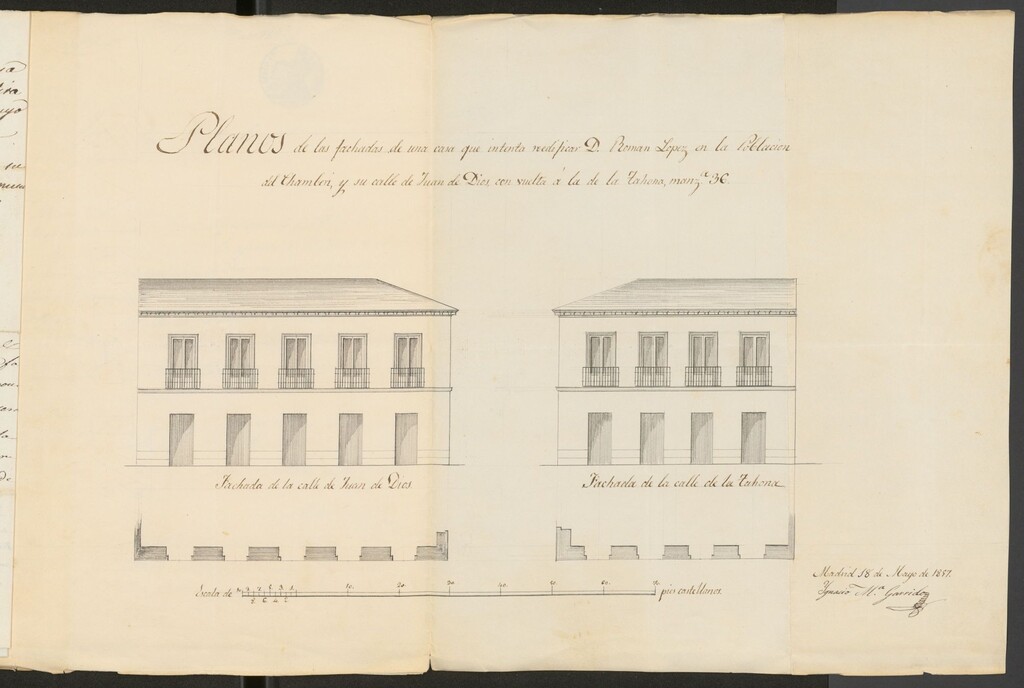 Planos de las fachadas de una casa que intenta reedificar D. Roman Lopez en la Poblacion
del Chamberi, y su calle de Juan de Dios, con vuelta á la de la Tahona, manz.ª 36.
Fachada de la calle de Juan de Dios
Fachada de la calle de la Tahona
Escala de
10. 20. 30 40. 50. 60. 70
pies castellanos.
Madrid 18 de Mayo de 1857.
Ignacio M.ª Garrido